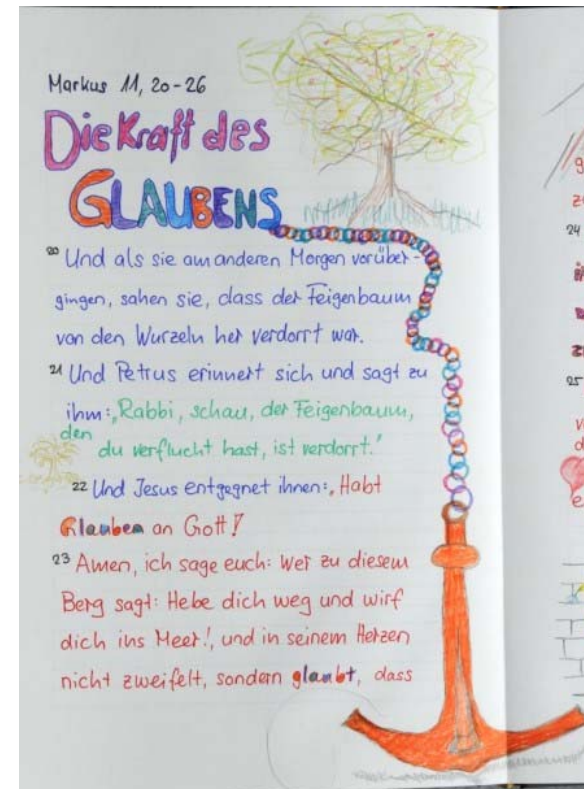 Markus 11, 20-26
Die Kraft des
GLAUBENS
20 Und als sie am anderen Morgen vorüber-
gingen, sahen sie, dass der Feigenbaum
von den Wurzeln her verdorrt war.
21 Und Petrus erinnert sich und sagt zu
ihm: ‚Rabbi, schau, der Feigenbaum,
den
du verflucht hast, ist verdorrt.'
22 Und Jesus entgegnet ihnen: ‚Habt
Glauben an Gott!
23 Amen, ich sage euch: Wer zu diesem
Berg sagt: Hebe dich weg und wirf
dich ins Meer!, und in seinem Herzen
nicht zweifelt, sondern glaubt, dass
24
25